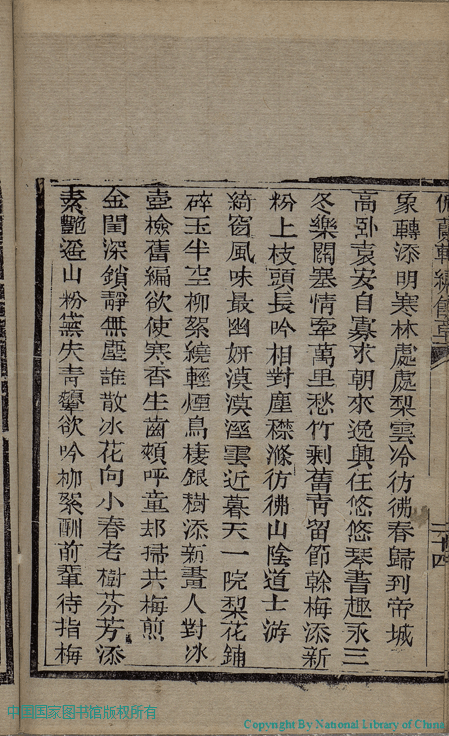 象轉添明寒林處處梨雲冷彷彿春歸到帝城
高臥袁安自寡求朝來逸興任悠悠琴書趣永三
冬樂關塞情牽萬里愁竹剩舊青留節榦梅添新
粉上枝頭長吟相對塵襟滌彷彿山陰道士游
綺窗風味最幽妍漠漠溼雲近暮天一院梨花鋪
碎玉半空柳絮繞輕煙鳥棲銀樹添新畫人對冰
壺檢舊編欲使寒香生齒頰呼童却掃共梅煎
金閨深鎖靜無塵誰散冰花向小春老樹芬芳添
素艷遥山粉黛失青顰欲吟柳絮酬前輩待指梅
中国国家图书馆版权所有
Copyright By National Library of China